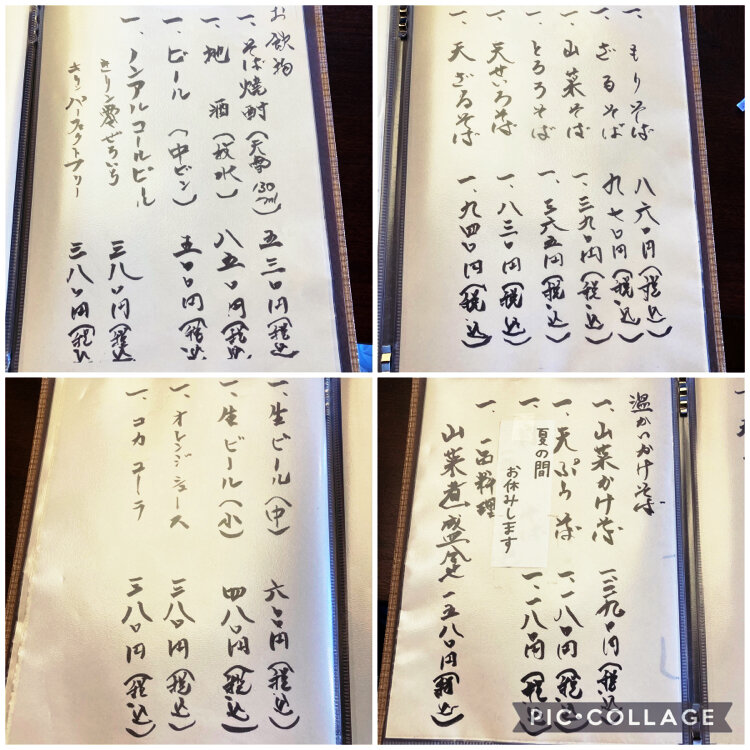 お飲物
一、そば焼酎(天雷130ml) 五三〇円(税込)
一、地酒 八五〇円(税込)
一、ビール(中ビン) 五〇〇円(税込)
一、ノンアルコールビール
きりん零ぜろいち 三八〇円(税込)
きりンパーフェクトフリー 三八〇円(税込)
一、もりそば 八六〇円(税込)
一、ざるそば 九七〇円(税込)
一、山菜そば 一、三九〇円(税込)
一、とろろそば 一、三六五円(税込)
一、天せいろそば 一、八三〇円(税込)
一、天ざるそば 一、九四〇円(税込)
一、生ビール(中) 六〇〇円(税込)
一、生ビール(小) 四八〇円(税込)
一、オレンジジュース 三八〇円(税込)
一、コカコーラ 三八〇円(税込)
温かいかけそば
一、山菜かけそば 一、三九〇円(税込)
一、天ぷらそば 一、一八〇円(税込)
夏の間
お休みします
一、一、一八〇円(税込)
一、一品料理
山菜煮盛合せ 一五八〇円(税込)
PIC・COLLAGE